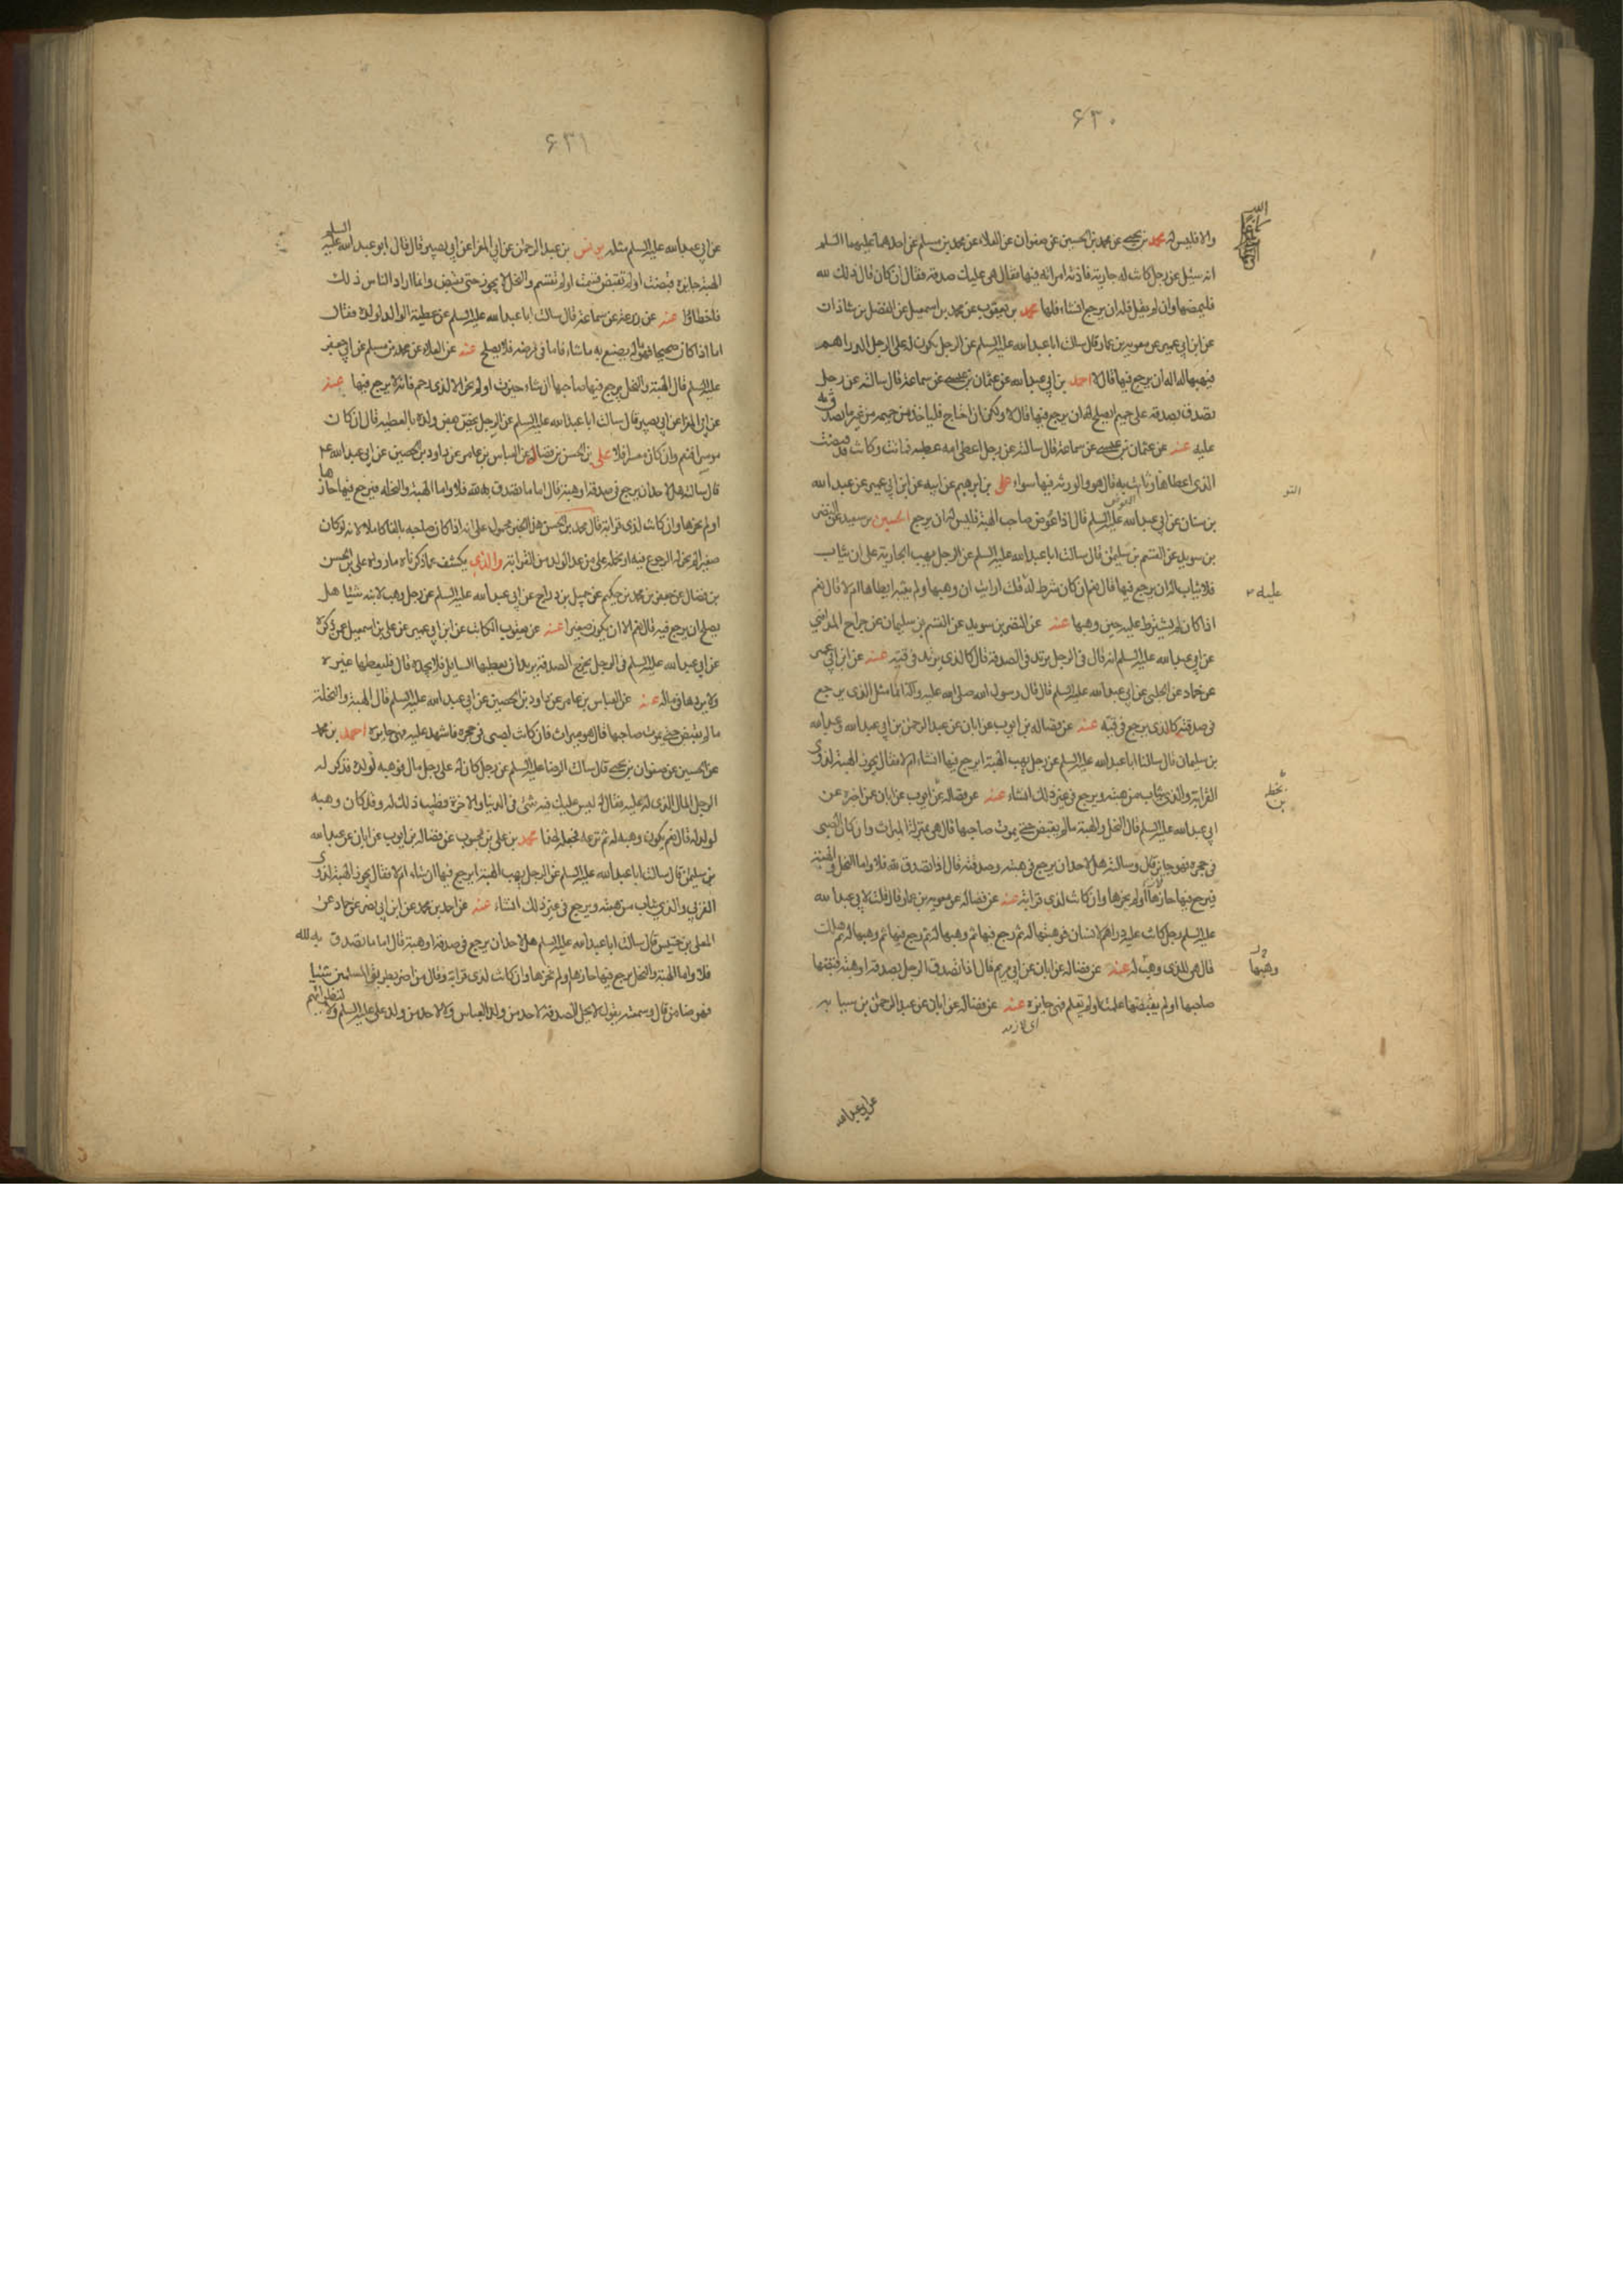 ۶۳۰
والا فليس له محمد بن يحيى عن محمد بن الحسين عن صفوان عن العلاء عن محمد بن مسلم عن احدهما عليهما السلم
انه سئل عن رجل كانت له جارية فاذته امراته فيها فقال هى عليك صدقة فقال ان كان قال ذلك لله
فليمضها وان لم يقل فله ان يرجع ان شاء فيها محمد بن يعقوب عن محمد بن اسمعيل عن الفضل بن شاذان
عن ابن ابي عمير عن معوية بن عمار قال سالت ابا عبد الله عليه السلم عن الرجل يكون له على الرجل الدراهم
فيهبها له اله ان يرجع فيها قال لا احمد بن ابي عبد الله عن عثمان بن عيسى عن سماعة قال سالته عن رجل
تصدق بصدقة على حميم ايصلح له ان يرجع فيها قال لا ولكن ان احتاج فلياخذ من حميمه من غير ما تصدق به
عليه عنه عن عثمان بن عيسى عن سماعة قال سالته عن رجل اعطى امه عطية فماتت وكانت قد قبضت
الذى اعطاها وبانت به قال هو والورثة فيها سواء على بن ابرهيم عن ابيه عن ابن ابي عمير عن عبد الله
بن سنان عن ابي عبد الله عليه السلم قال اذا عوض صاحب الهبة فليس له ان يرجع الحسين بن سعيد عن النضر
بن سويد عن القسم بن سليمن قال سالت ابا عبد الله عليه السلم عن الرجل يهب الجارية على ان يثاب
فلا يثاب اله ان يرجع فيها قال نعم ان كان شرط له قلت ارايت ان وهبها ولم يثبه ايطاها ام لا قال نعم
اذا كان لم يشترط عليه حين وهبها عنه عن النضر بن سويد عن القسم بن سليمان عن جراح المدايني
عن ابي عبد الله عليه السلم انه قال فى الرجل يرتد فى الصدقة قال كالذى يرتد فى قيئه عنه عن ابن ابي عمير
عن حماد عن الحلبى عن ابي عبد الله عليه السلم قال قال رسول الله صلى الله عليه وآله انما مثل الذى يرجع
فى صدقته كالذى يرجع فى قيئه عنه عن فضالة بن ايوب عن ابان عن عبد الرحمن بن ابي عبد الله وعبد الله
بن سليمان قال سالنا ابا عبد الله عليه السلم عن رجل يهب الهبة ايرجع فيها ان شاء ام لا فقال يجوز الهبة لذوى
القرابة والذى يثاب من هبته ويرجع فى غير ذلك ان شاء عنه عن فضالة عن ايوب عن ابان عن اخبره عن
ابي عبد الله عليه السلم قال النحل والهبة ما لم يقبض حتى يموت صاحبها قال هى بمنزلة الميراث وان كان لصبى
فى حجره فهو جايز قال وسالته هل لاحد ان يرجع فى هبته وصدقته قال اذا تصدق لله فلا واما النحل والهبة
فيرجع فيها حازها او لم يحزها وان كانت لذى قرابة عنه عن فضالة عن معوية بن عمار قال قلت لابي عبد الله
عليه السلم رجل كانت عليه دراهم لانسان فوهبها له ثم رجع فيها ثم وهبها له ثم رجع فيها ثم وهبها له ثم هلك
قال هى للذى وهب له عنه عن فضالة عن ابان عن ابي مريم قال اذا تصدق الرجل بصدقة او هبة قبضها
صاحبها او لم يقبضها علمت او لم تعلم فهى جايزة عنه عن فضالة عن ابان عن عبد الرحمن بن سيابه
اى لازمه
عن ابي عبد الله
عليه
وهبها
۶۳۱
عن ابي عبد الله عليه السلم مثله يونس بن عبد الرحمن عن ابي المغرا عن ابي بصير قال قال ابو عبد الله عليه السلم
الهبة جايزة قبضت او لم تقبض قسمت او لم تقسم والنحل لا يجوز حتى تقبض وانما اراد الناس ذلك
فاخطاوا عنه عن زرعة عن سماعة قال سالت ابا عبد الله عليه السلم عن عطية الوالد لولده فقال
اما اذا كان صحيحا فهو ماله يصنع به ما شاء فاما فى مرضه فلا يصلح عنه عن العلاء عن محمد بن مسلم عن ابي جعفر
عليه السلم قال الهبة والنحل يرجع فيها صاحبها ان شاء حيزت او لم تحز الا لذى رحم فانه لا يرجع فيها عنه
عن ابي المغرا عن ابي بصير قال سالت ابا عبد الله عليه السلم عن الرجل يخص بعض ولده بالعطية قال ان كان
موسرا فنعم وان كان معسرا فلا على بن الحسن بن فضال عن العباس بن عامر عن داود بن الحصين عن ابي عبد الله ع
قال سالته هل لاحد ان يرجع فى صدقة او هبة قال اما ما تصدق به لله فلا واما الهبة والنحلة فيرجع فيها حازها
او لم يحزها وان كانت لذى قرابة قال محمد بن الحسن هذا الخبر محمول على انه اذا كان صاحبه بالغا كاملا لانه لو كان
صغيرا لم يجز له الرجوع فيه او نحمله على من عدا الولد من القرابة والذى يكشف عما ذكرناه ما رواه على بن الحسن
بن فضال عن جعفر بن محمد بن حكيم عن جميل بن دراج عن ابي عبد الله عليه السلم عن رجل وهب لابنه شيئا هل
يصلح ان يرجع فيه قال نعم الا ان يكون صغيرا عنه عن يعقوب الكاتب عن ابن ابي عمير عن على بن اسمعيل عمن ذكره
عن ابي عبد الله عليه السلم فى الرجل يخرج الصدقة يريد ان يعطيها السايل فلا يجده قال فليعطها غيره
ولا يردها فى ماله عنه عن العباس بن عامر عن داود بن الحصين عن ابي عبد الله عليه السلم قال الهبة والنحلة
ما لم يقبض حتى يموت صاحبها قال هو ميراث فان كانت لصبى فى حجره فاشهد عليه فهى جايزة احمد بن محمد
عن الحسين عن صفوان بن يحيى قال سالت الرضا عليه السلم عن رجل كان له على رجل مال فوهبه لولده فذكر له
الرجل المال الذى له عليه فقال له ليس عليك فيه شئ فى الدنيا والاخرة فطيب ذلك له وقد كان وهبه
لولد له قال نعم يكون وهبه له ثم نزعه فجعله لهذا محمد بن على بن محبوب عن فضالة بن ايوب عن ابان عن عبد الله
بن سليمن قال سالت ابا عبد الله عليه السلم عن الرجل يهب الهبة ايرجع فيها ان شاء ام لا فقال يجوز الهبة لذوى
القربى والذى يثاب من هبته ويرجع فى غير ذلك ان شاء عنه عن احمد بن محمد عن ابن ابي نصر عن حماد عن
المعلى بن خنيس قال سالت ابا عبد الله عليه السلم هل لاحد ان يرجع فى صدقة او هبة قال اما ما تصدق به لله
فلا واما الهبة والنحل يرجع فيها حازها او لم يحزها وان كانت لذى قرابة وقال من اضر بطريق المسلمين شيئا
فهو ضامن قال وسمعته يقول لا يحل الصدقة لاحد من ولد العباس ولا لاحد من ولد على عليه السلم ولا لنظرائهم